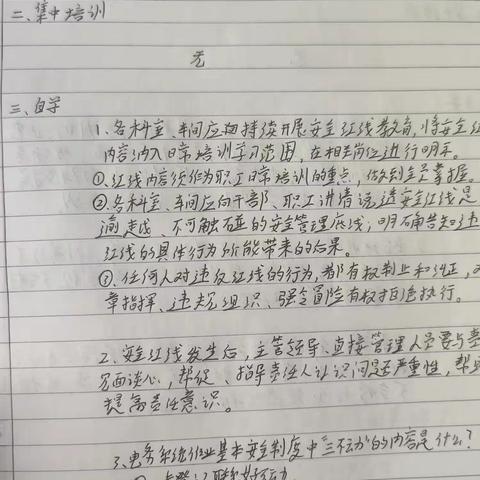 二、集中培训
无
三、自学
1、各科室、车间应加持续开展安全红线教育,将安全红
内容纳入日常培训学习范围,在相关岗位进行明示。
①红线内容须作为职工日常培训的重点,做到全员掌握。
②各科室、车间应向干部、职工讲清说透安全红线是
逾越、不可触碰的安全管理底线;明确告知违
红线的具体行为所能带来的后果。
③、任何人对违反红线的行为,都有权制止和纠正,对
章指挥、违规组织、强令冒险有权拒绝执行。
2、安全红线发生后,主管领导、直接管理人员要与其
面谈心,帮促、指导责任人认识问题严重性,帮助
提高责任意识。
3、电务系统作业基本安全制度中"三不动"的内容是什么?